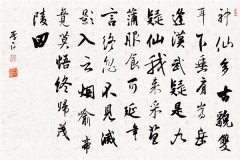 神仙多古貌雙
耳下垂肩嵩岳
逢漢武疑是九
疑仙我來采菖
蒲服食可延年
言終忽不見滅
影入云烟喻帝
竟莫悟終歸茂
陵田